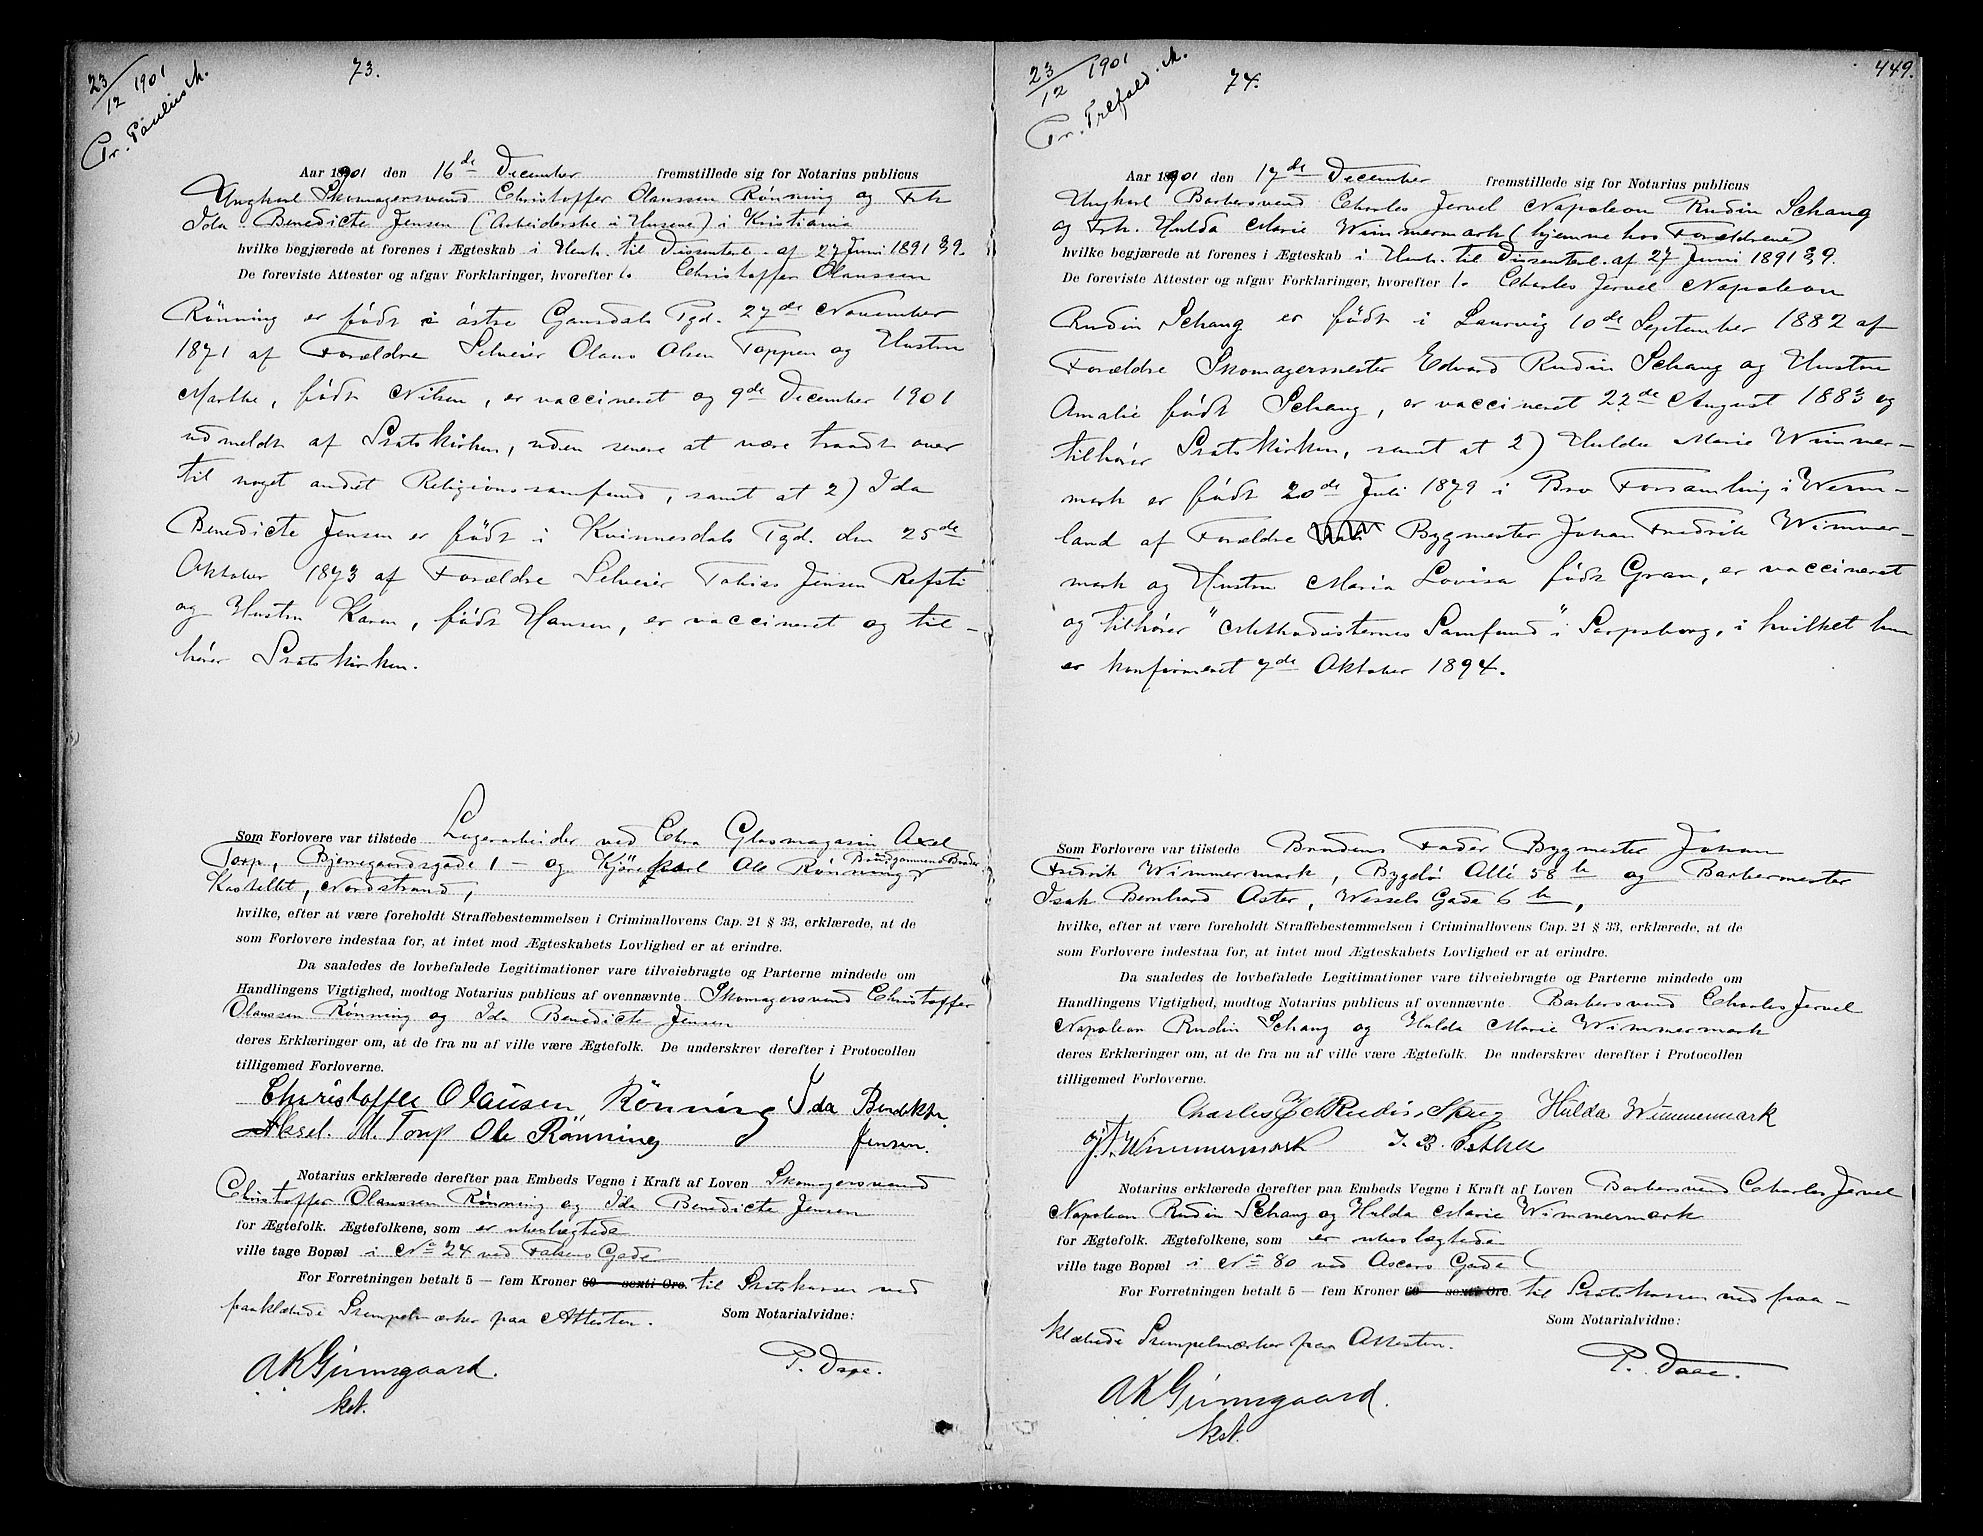 23/12 1901
Pr. Paulus M.
73.
Aar 1901 den 16de December fremstillede sig for Notarius publicus
Ungkarl Skomagersvend Christoffer Olaussen Rønning og Frk
Ida Benedicte Jensen (Arbeiderske i Husene) i Kristiania
hvilke begjærede at forenes i Ægteskab i Henh. til Dissenterl. af 27 Juni 1891 § 9.
De foreviste Attester og afgav Forklaringer, hvorefter 1. Christoffer Olaussen
Rønning er født i østre Gausdals Pgd. 27de November
1871 af Forældre Selveier Olaus Olsen Toppen og Hustru
Marthe, født Nilsen, er vaccineret og 9de December 1901
udmeldt af Statskirken, uden senere at være traadt over
til noget andet Religionssamfund, samt at 2) Ida
Benedicte Jensen er født i Kvinnesdals Pgd. den 25de
Oktober 1873 af Forældre Selveier Tobias Jensen Refsti
og Hustru Karen, født Hansen, er vaccineret og til-
hører Statskirken.
Som Forlovere var tilstede Lagerarbeider ved Chra Glasmagasin Axel
Torp, Bjerregaardsgade 1 – og Kjørekarl Ole Rønning, Brudgommens Broder
Kastellet, Nordstrand,
hvilke, efter at være foreholdt Straffebestemmelsen i Criminallovens Cap. 21 § 33, erklærede, at de
som Forlovere indestaa for, at intet mod Ægteskabets Lovlighed er at erindre.
Da saaledes de lovbefalede Legitimationer vare tilveiebragte og Parterne mindede om
Handlingens Vigtighed, modtog Notarius publicus af ovennævnte Skomagersvend Christoffer
Olaussen Rønning og Ida Benedicte Jensen
deres Erklæringer om, at de fra nu af ville være Ægtefolk. De underskrev derefter i Protocollen
tilligemed Forloverne.
Christoffer Olausen Rönning Ida Bendikte
Aksel. M. Torp Ole Rønning Jensen.
Notarius erklærede derefter paa Embeds Vegne i Kraft af Loven Skomagersvend
Christoffer Olaussen Rønning og Ida Benedicte Jensen
for Ægtefolk. Ægtefolkene, som er ubeslægtede
ville tage Bopæl i No 24 ved Falsens Gade
For Forretningen betalt 5 — fem Kroner 60 — sexti Øre. til Statskassen ved
paaklæbede Stempelmærker paa Attesten. Som Notarialvidne:
A K Grimsgaard. P. Daae.
kst.
449.
23/12 1901
Pr. Trefold. M.
74.
Aar 1901 den 17de December fremstillede sig for Notarius publicus
Ungkarl Barbersvend Charles Jervel Napoleon Rudin Schang
og Frk. Hulda Marie Wimmermark (hjemme hos Forældrene)
hvilke begjærede at forenes i Ægteskab i Henh. til Dissenterl. af 27 Juni 1891 § 9.
De foreviste Attester og afgav Forklaringer, hvorefter 1. Charles Jervel Napoleon
Rudin Schang er født i Laurvig 10de September 1882 af
Forældre Skomagermester Edvard Rudin Schang og Hustru
Amalie født Schang, er vaccineret 22de August 1883 og
tilhører Statskirken, samt at 2) Hulda Marie Wimmer-
mark er født 20de Juli 1879 i Bro Forsamling i Werm-
land af Forældre Bygmester Johan Fredrik Wimmer-
mark og Hustru Maria Lovisa født Gran, er vaccineret
og tilhører "Methodisternes Samfund" i Sarpsborg, i hvilket hun
er konfirmeret 7de Oktober 1894.
Som Forlovere var tilstede Brudens Fader Bygmester Johan
Fredrik Wimmermark, Bygdø Allé 58 b og Barbermester
Isak Bernhard Aster, Wessels Gade 6 b,
hvilke, efter at være foreholdt Straffebestemmelsen i Criminallovens Cap. 21 § 33, erklærede, at de
som Forlovere indestaa for, at intet mod Ægteskabets Lovlighed er at erindre.
Da saaledes de lovbefalede Legitimationer vare tilveiebragte og Parterne mindede om
Handlingens Vigtighed, modtog Notarius publicus af ovennævnte Barbersvend Charles Jervel
Napoleon Rudin Schang og Hulda Marie Wimmermark
deres Erklæringer om, at de fra nu af ville være Ægtefolk. De underskrev derefter i Protocollen
tilligemed Forloverne.
Charles Rudin Hulda Wimmermark
J. F. Wimmermark I. B.
Notarius erklærede derefter paa Embeds Vegne i Kraft af Loven Barbersvend Charles Jervel
Napoleon Rudin Schang og Hulda Marie Wimmermark
for Ægtefolk. Ægtefolkene, som er ubeslægtede
ville tage Bopæl i No 80 ved Oscars Gade
For Forretningen betalt 5 — fem Kroner 60 — sexti Øre. til Statskassen ved paa-
klæbede Stempelmærker paa Attesten. Som Notarialvidne:
A K Grimsgaard. P. Daae.
kst.